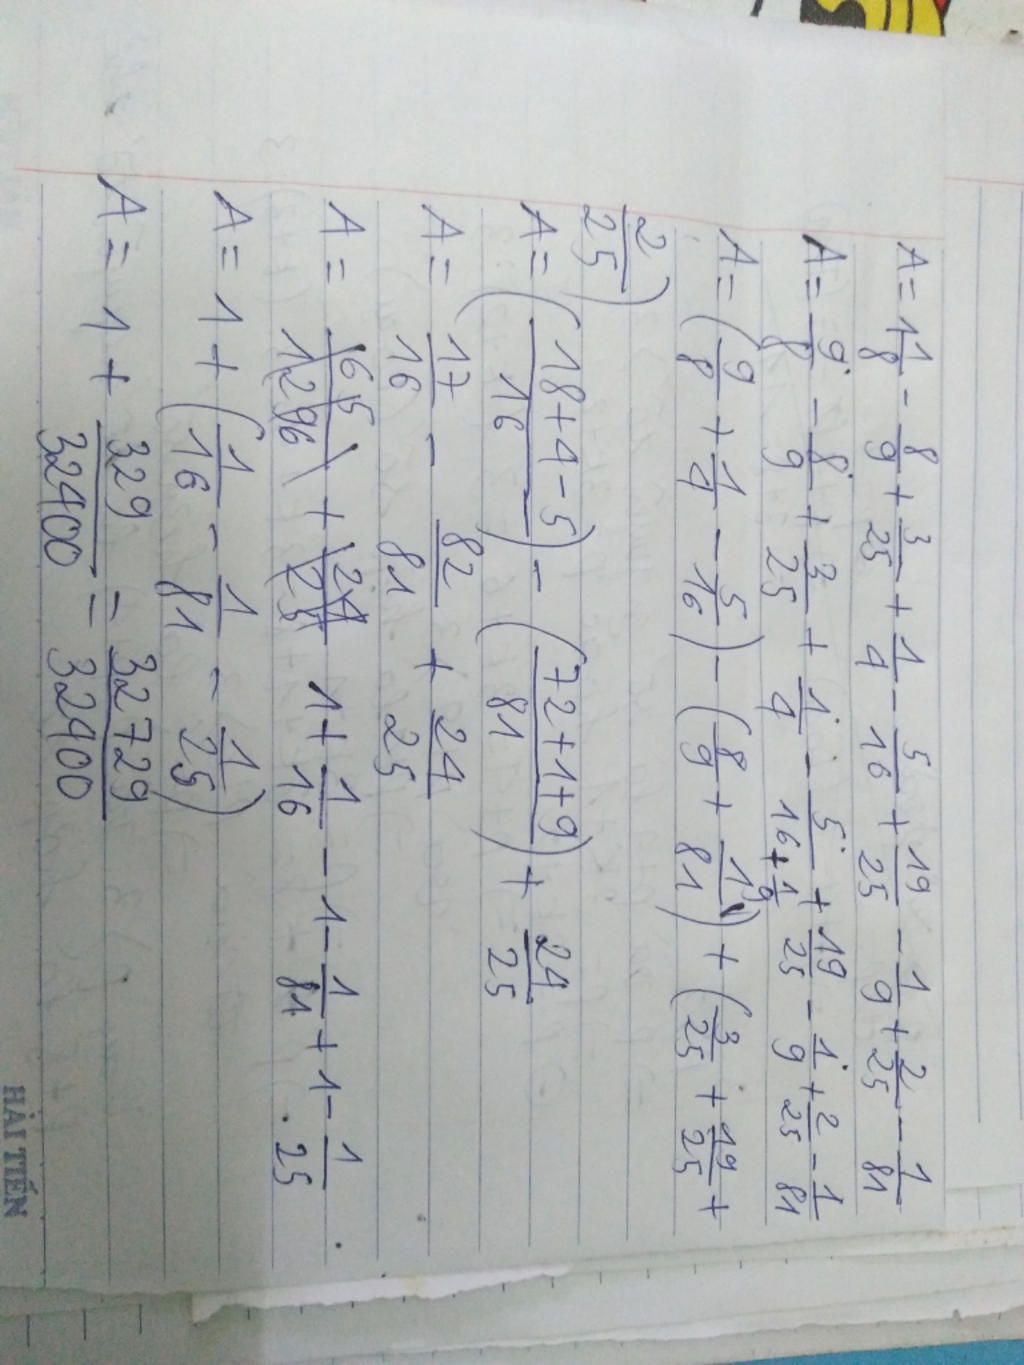 A = 1 1/8 - 8/9 + 3/25 + 1/4 - 5/16 + 19/25 - 1/9 + 2/25 - 1/81
A = 9/8 - 8/9 + 3/25 + 1/4 - 5/16 + 19/25 - 1/9 + 2/25 - 1/81
A = (9/8 + 1/4 - 5/16) - (8/9 + 1/81) + (3/25 + 19/25 +
2/25)
A = (18+4-5/16) - (72+1+9/81) + 24/25
A = 17/16 - 82/81 + 24/25
A = 65/1296 + 24/25 1 + 1/16 - 1 - 1/81 + 1 - 1/25
A = 1 + (1/16 - 1/81 - 1/25)
A = 1 + 329/32400 = 32729/32400
HẢI TIẾN